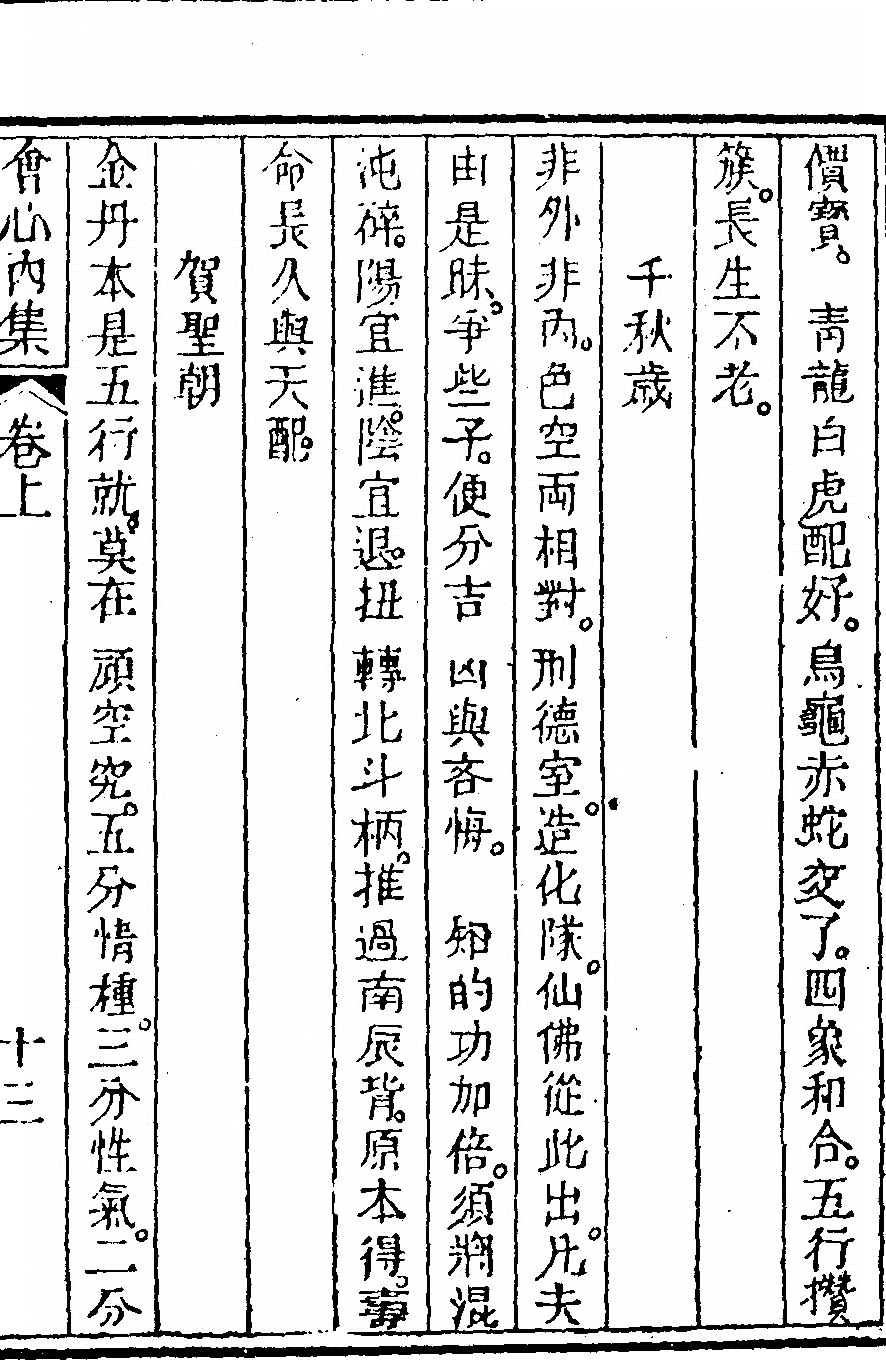 價寶。　青龍白虎配好。烏龜赤蛇交了。四象和合。五行攢
簇。長生不老。
千秋歲
非外非內。色空兩相對。刑德室。造化隊。仙佛從此出。凡夫
由是昧。爭些子。便分吉凶與吝悔。　知的功加倍。須將混
沌碎。陽宜進。陰宜退。扭轉北斗柄。推過南辰背。原本得。壽
命長久與天配。
賀聖朝
金丹本是五行就。莫在頑空究。五分情種。三分性氣。二分
會心內集　卷上　十三